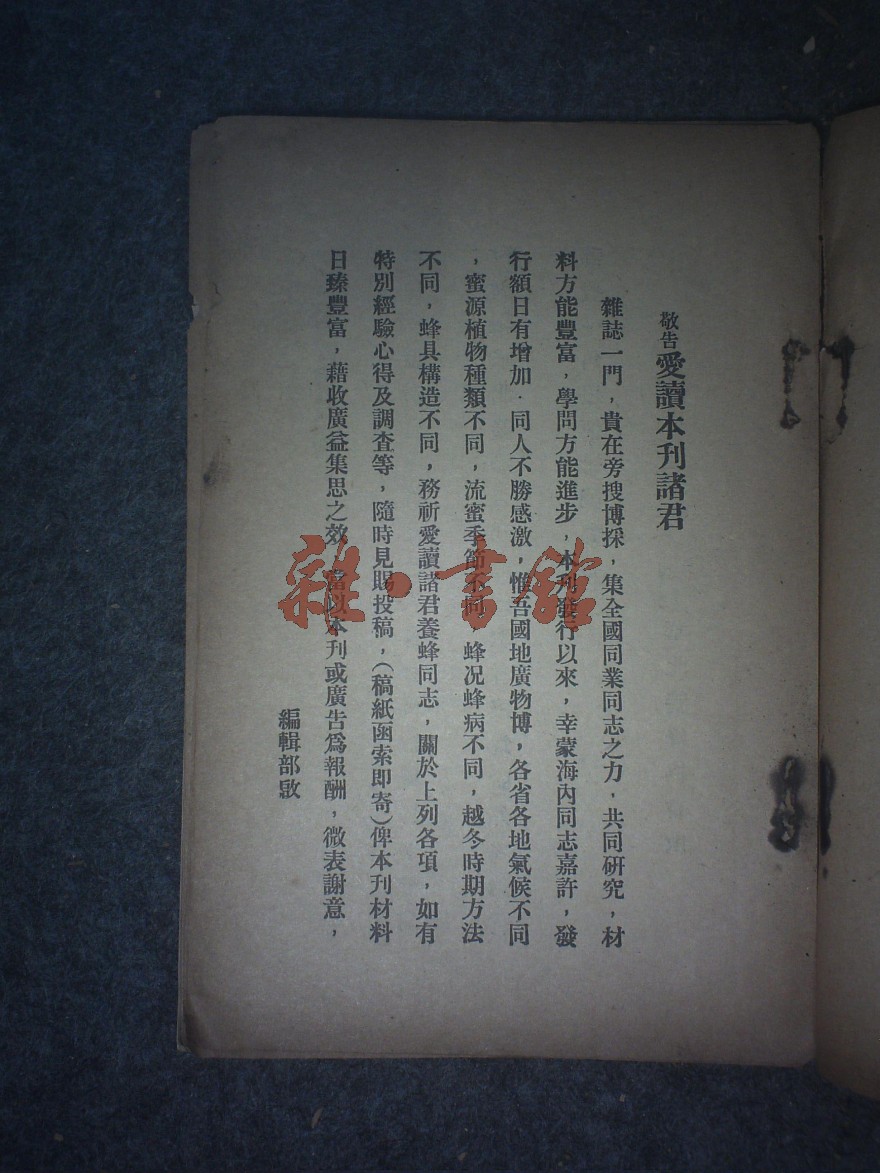 敬告愛讀本刊諸君
雜誌一門，貴在旁搜博採，集全國同業同志之力，共同研究，材
料方能豐富，學問方能進步，本刊發行以來，幸蒙海內同志嘉許，發
行額日有增加．同人不勝感激，惟吾國地廣物博，各省各地氣候不同
，蜜源植物種類不同，流蜜季節不同，蜂况蜂病不同，越冬時期方法
不同，蜂具構造不同，務祈愛讀諸君養蜂同志，關於上列各項，如有
特別經驗心得及調查等，隨時見賜投稿，（稿紙函索即寄）俾本刊材料
日臻豐富，藉收廣益集思之效，當以本刊或廣告爲報酬，微表謝意，
編輯部啟
雜·書館